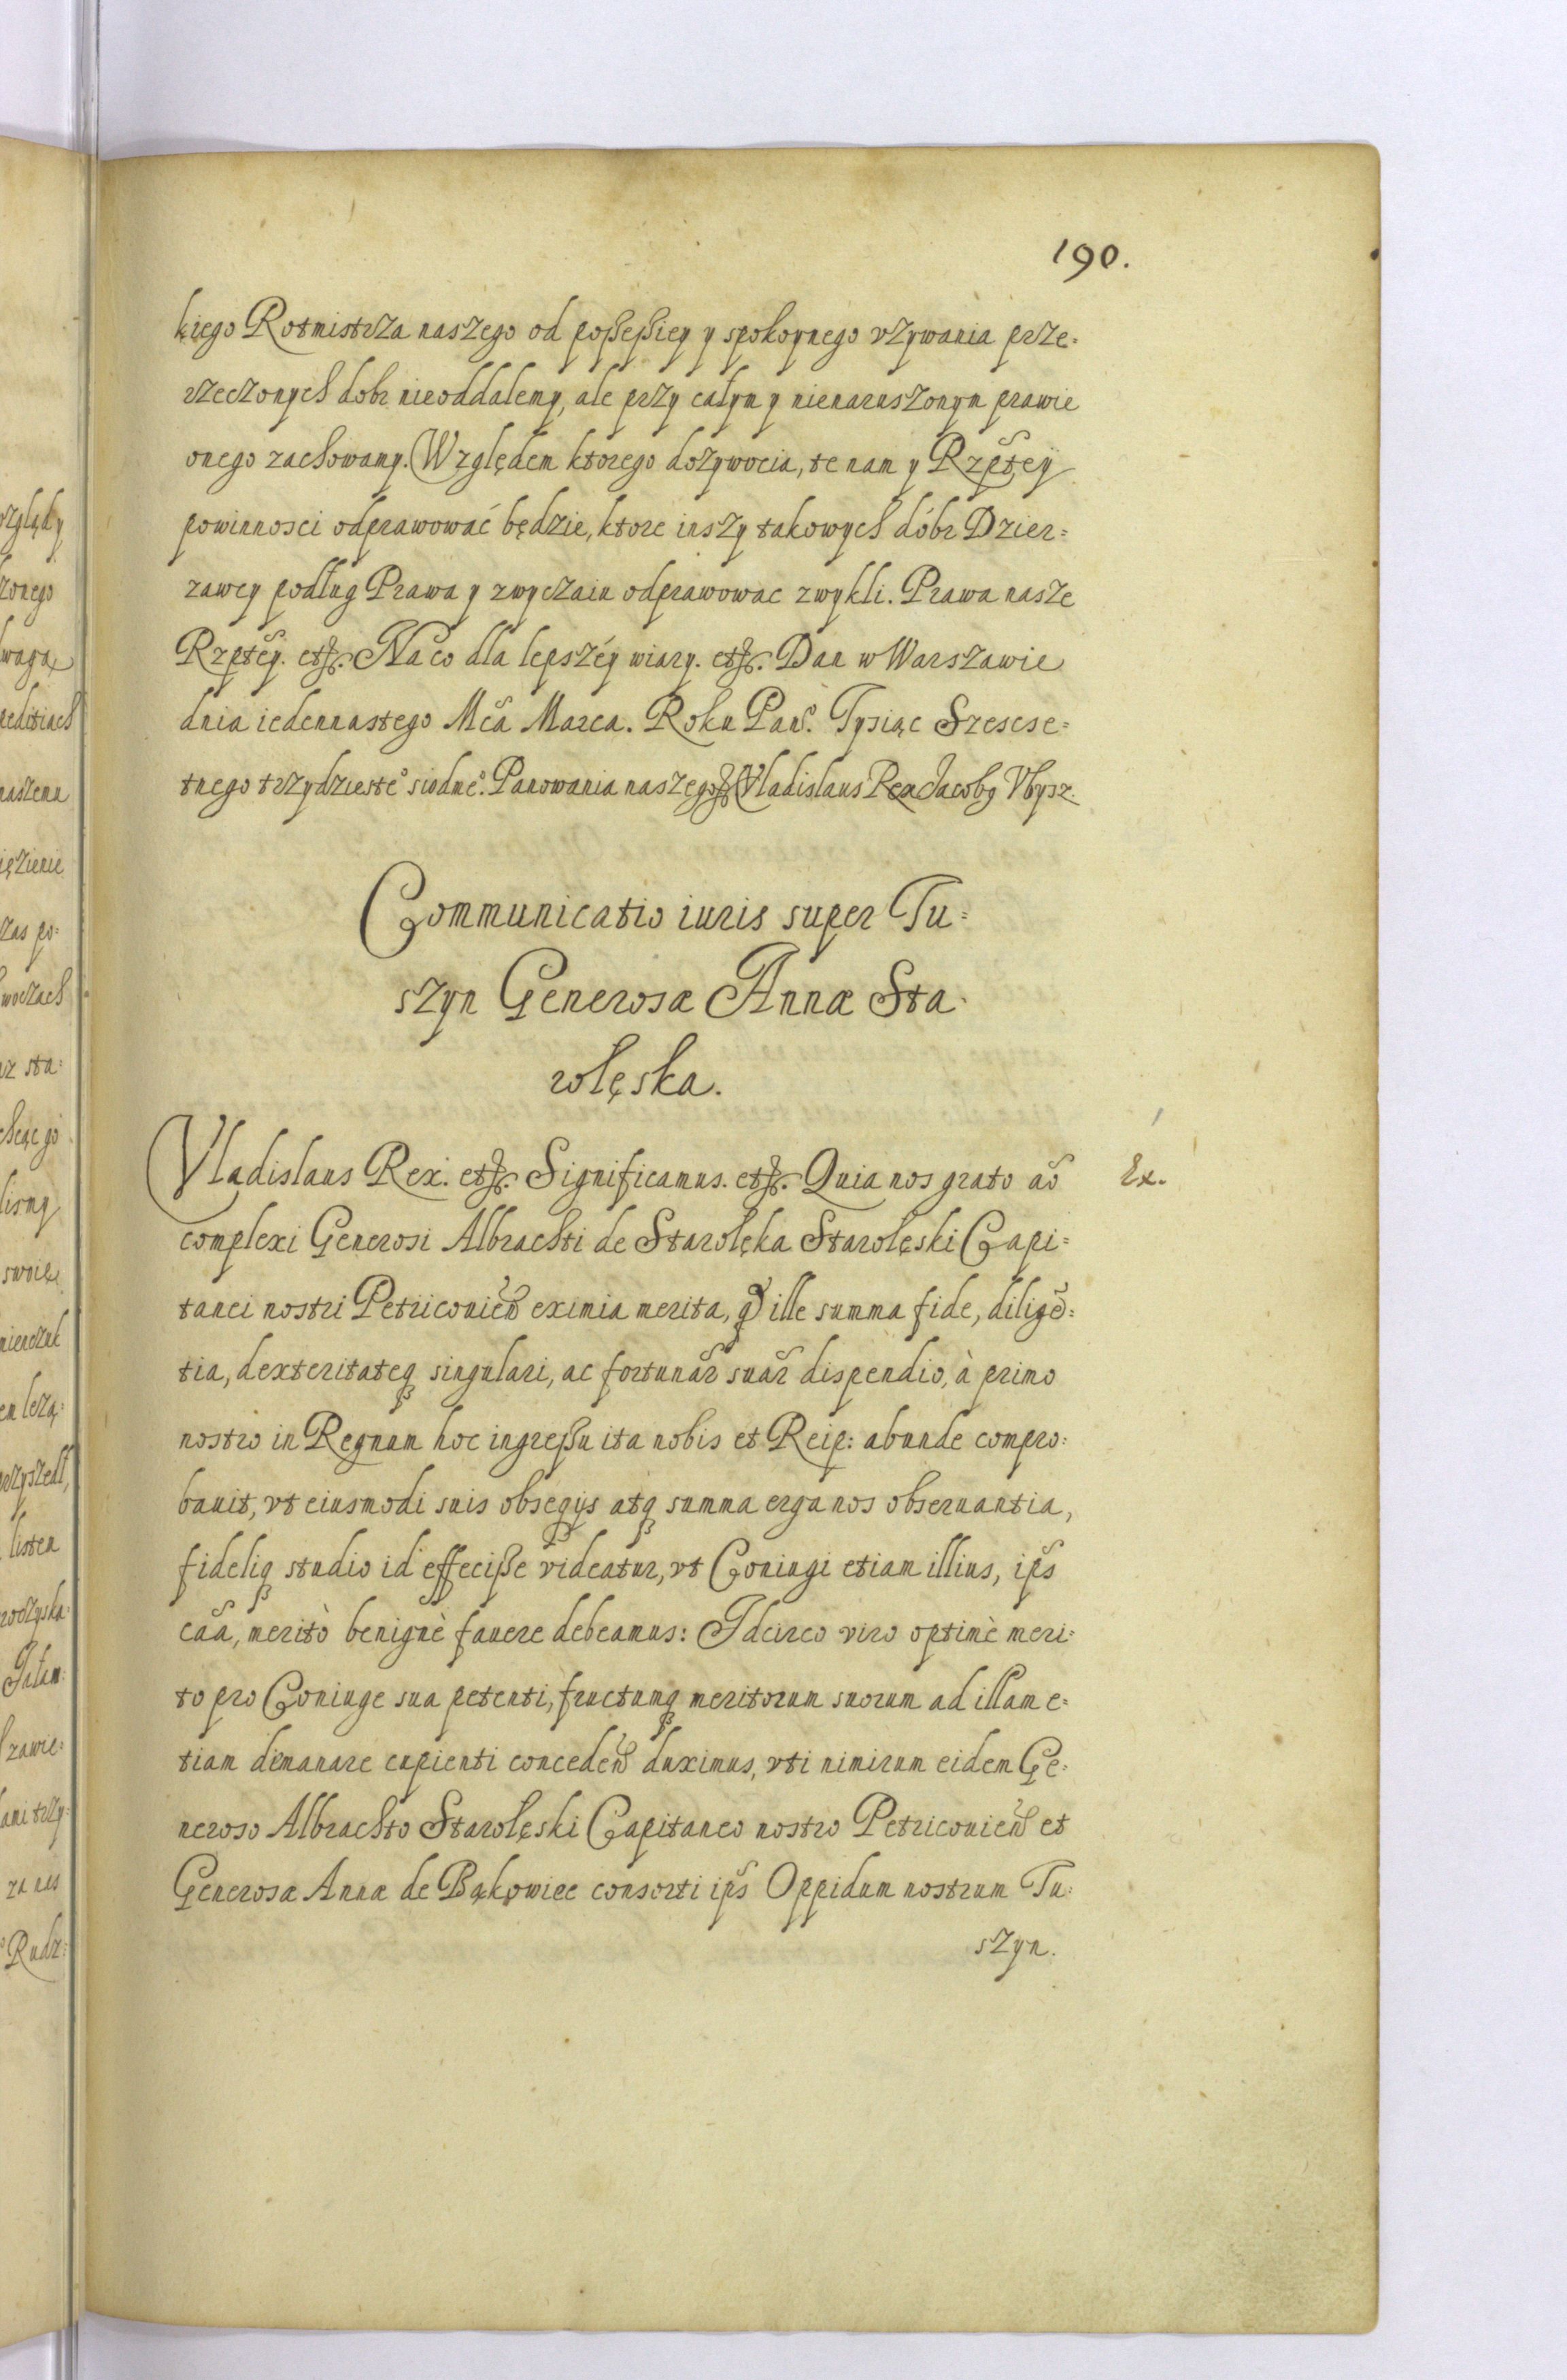 190.
kiego Rotmistrza naszego od poßeßiey y spokoynego vzywania prze=
rzeczonych dobr nieoddalemy, ale przy całym y nienaruszonym prawie
onego zachowamy. Względem ktorego dozywocia, te nam y Rzptey
powinnosci odprawować będzie, ktore inszy takowych dóbr Dzier=
zawcy podług Prawa y zwyczaiu odprawowac zwykli. Prawa nasze
Rzptey. etc. Na co dla lepszéy wiary. etc. Dan w Warszawie
dnia iedennastego Mca Marca. Roku Pans. Tysiąc Szescse=
tnego trzydzieste° siodme°. Panowania naszego etc Vladislaus Rex Jacobg Vbysz.
Communicatio iuris super Tu=
szyn Generosæ Annæ Sta=
rolęska.
Vladislaus Rex. etc. Significamus. etc. Quia nos grato ao
Ex.
complexi Generosi Albrachti de Starolęka Starolęski Capi=
tanei nostri Petriconien eximia merita, q ille summa fide, diligē=
tia, dexteritateq singulari, ac fortunar suar dispendio, à primo
nostro in Regnum hoc ingreßu ita nobis et Reip: abunde compro=
bauit, vt eiusmodi suis obseqijs atq summa erga nos obseruantia,
fideliq studio id effeciße videatur, vt Coniugi etiam illius, ips
caa, meritò benignè fauere debeamus: Idcirco viro optimè meri=
to pro Coniuge sua petenti, fructumq meritorum suorum ad illam e=
tiam dimanare cupienti conceden duximus, vti nimirum eidem Ge=
neroso Albrachto Starolęski Capitaneo nostro Petriconien et
Generosæ Annæ de Bąkowiec consorti ips Oppidum nostrum Tu=
szyn.